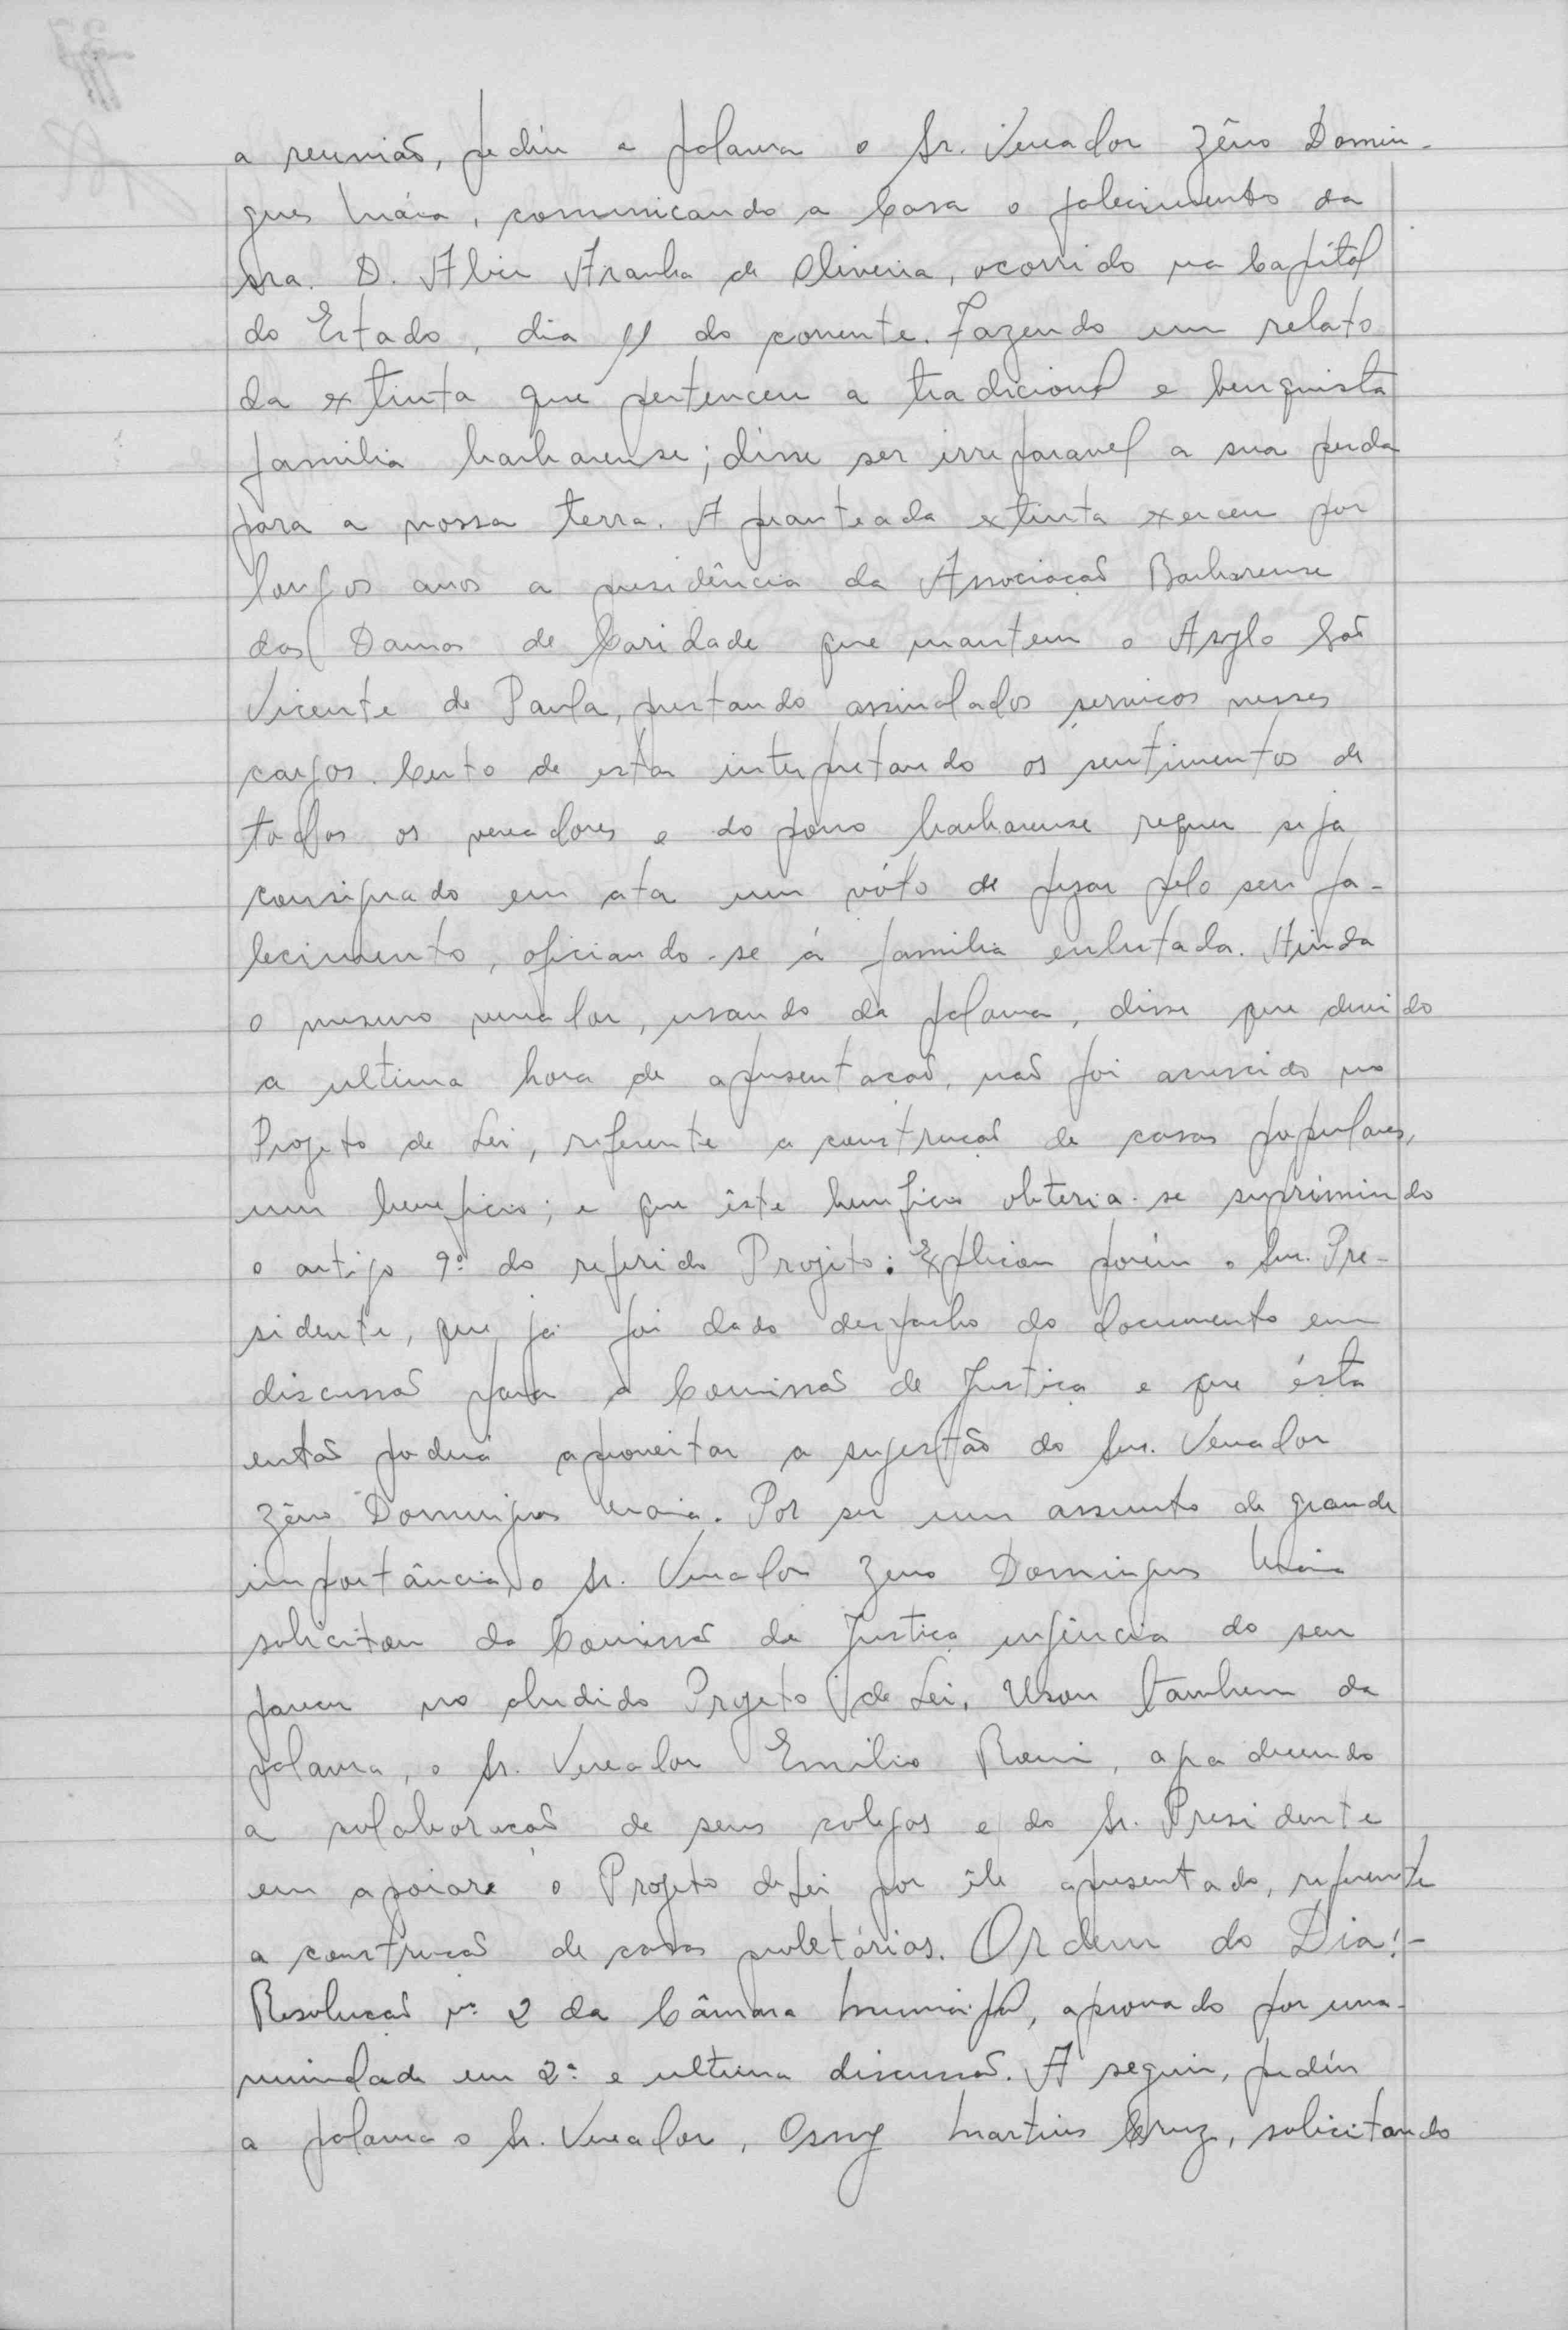 a reunião, pediu a palavra o Sr. Vereador Zêno Domin-
gues Máia, comunicando a Casa o falecimento da
sra. D. Alice Aranha de Oliveira, ocorrido na Capital
do Estado, dia 11 do corrente. Fazendo um relato
da extinta que pertenceu a tradicional e benquista
familia barbarense; disse ser irreparavel a sua perda
para a nossa terra. A pranteada extinta exerceu por
longos anos a presidência da Associação Barbarense
das Damas de Caridade que mantem o Asylo São
Vicente de Paula, prestando assinalados serviços nesses
cargos. Certo de estar interpretando os sentimentos de
todos os vereadores e do povo barbarense requer seja
consignado em ata um vóto de pezar pelo seu fa-
lecimento, oficiando-se á familia enlutada. Ainda
o mesmo vereador, usando da palavra, disse que devido
a ultima hora de apresentação, não foi acrescido no
Projeto de Lei, referente a construção de casas populares,
um beneficio; e que êste beneficio obteria-se suprimindo
o artigo 9º do referido Projeto: Explicou porém o Snr. Pre-
sidente, que já foi dado despacho do documento em
discussão para a Comissão de Justiça e que ésta
então poderá aproveitar a sugestão do Snr. Vereador
Zêno Domingues Maia. Por ser um assunto de grande
importância, o Sr. Vereador Zeno Domingues Maia
solicitou da Comissão de Justiça urgência do seu
parecer no aludido Projeto de Lei. Usou tambem da
palavra, o Sr. Vereador Emilio Romi, agradecendo
a colaboração de seus colegas e do Sr. Presidente
em apoiare o Projeto de Lei por êle apresentado, referente
a construção de casas proletárias. Ordem do Dia:-
Resolução nº 2 da Câmara Municipal, aprovado por una-
nimidade em 2ª e ultima discussão. A seguir, pediu
a palavra o Sr. Vereador, Osny Martins Cruz, solicitando